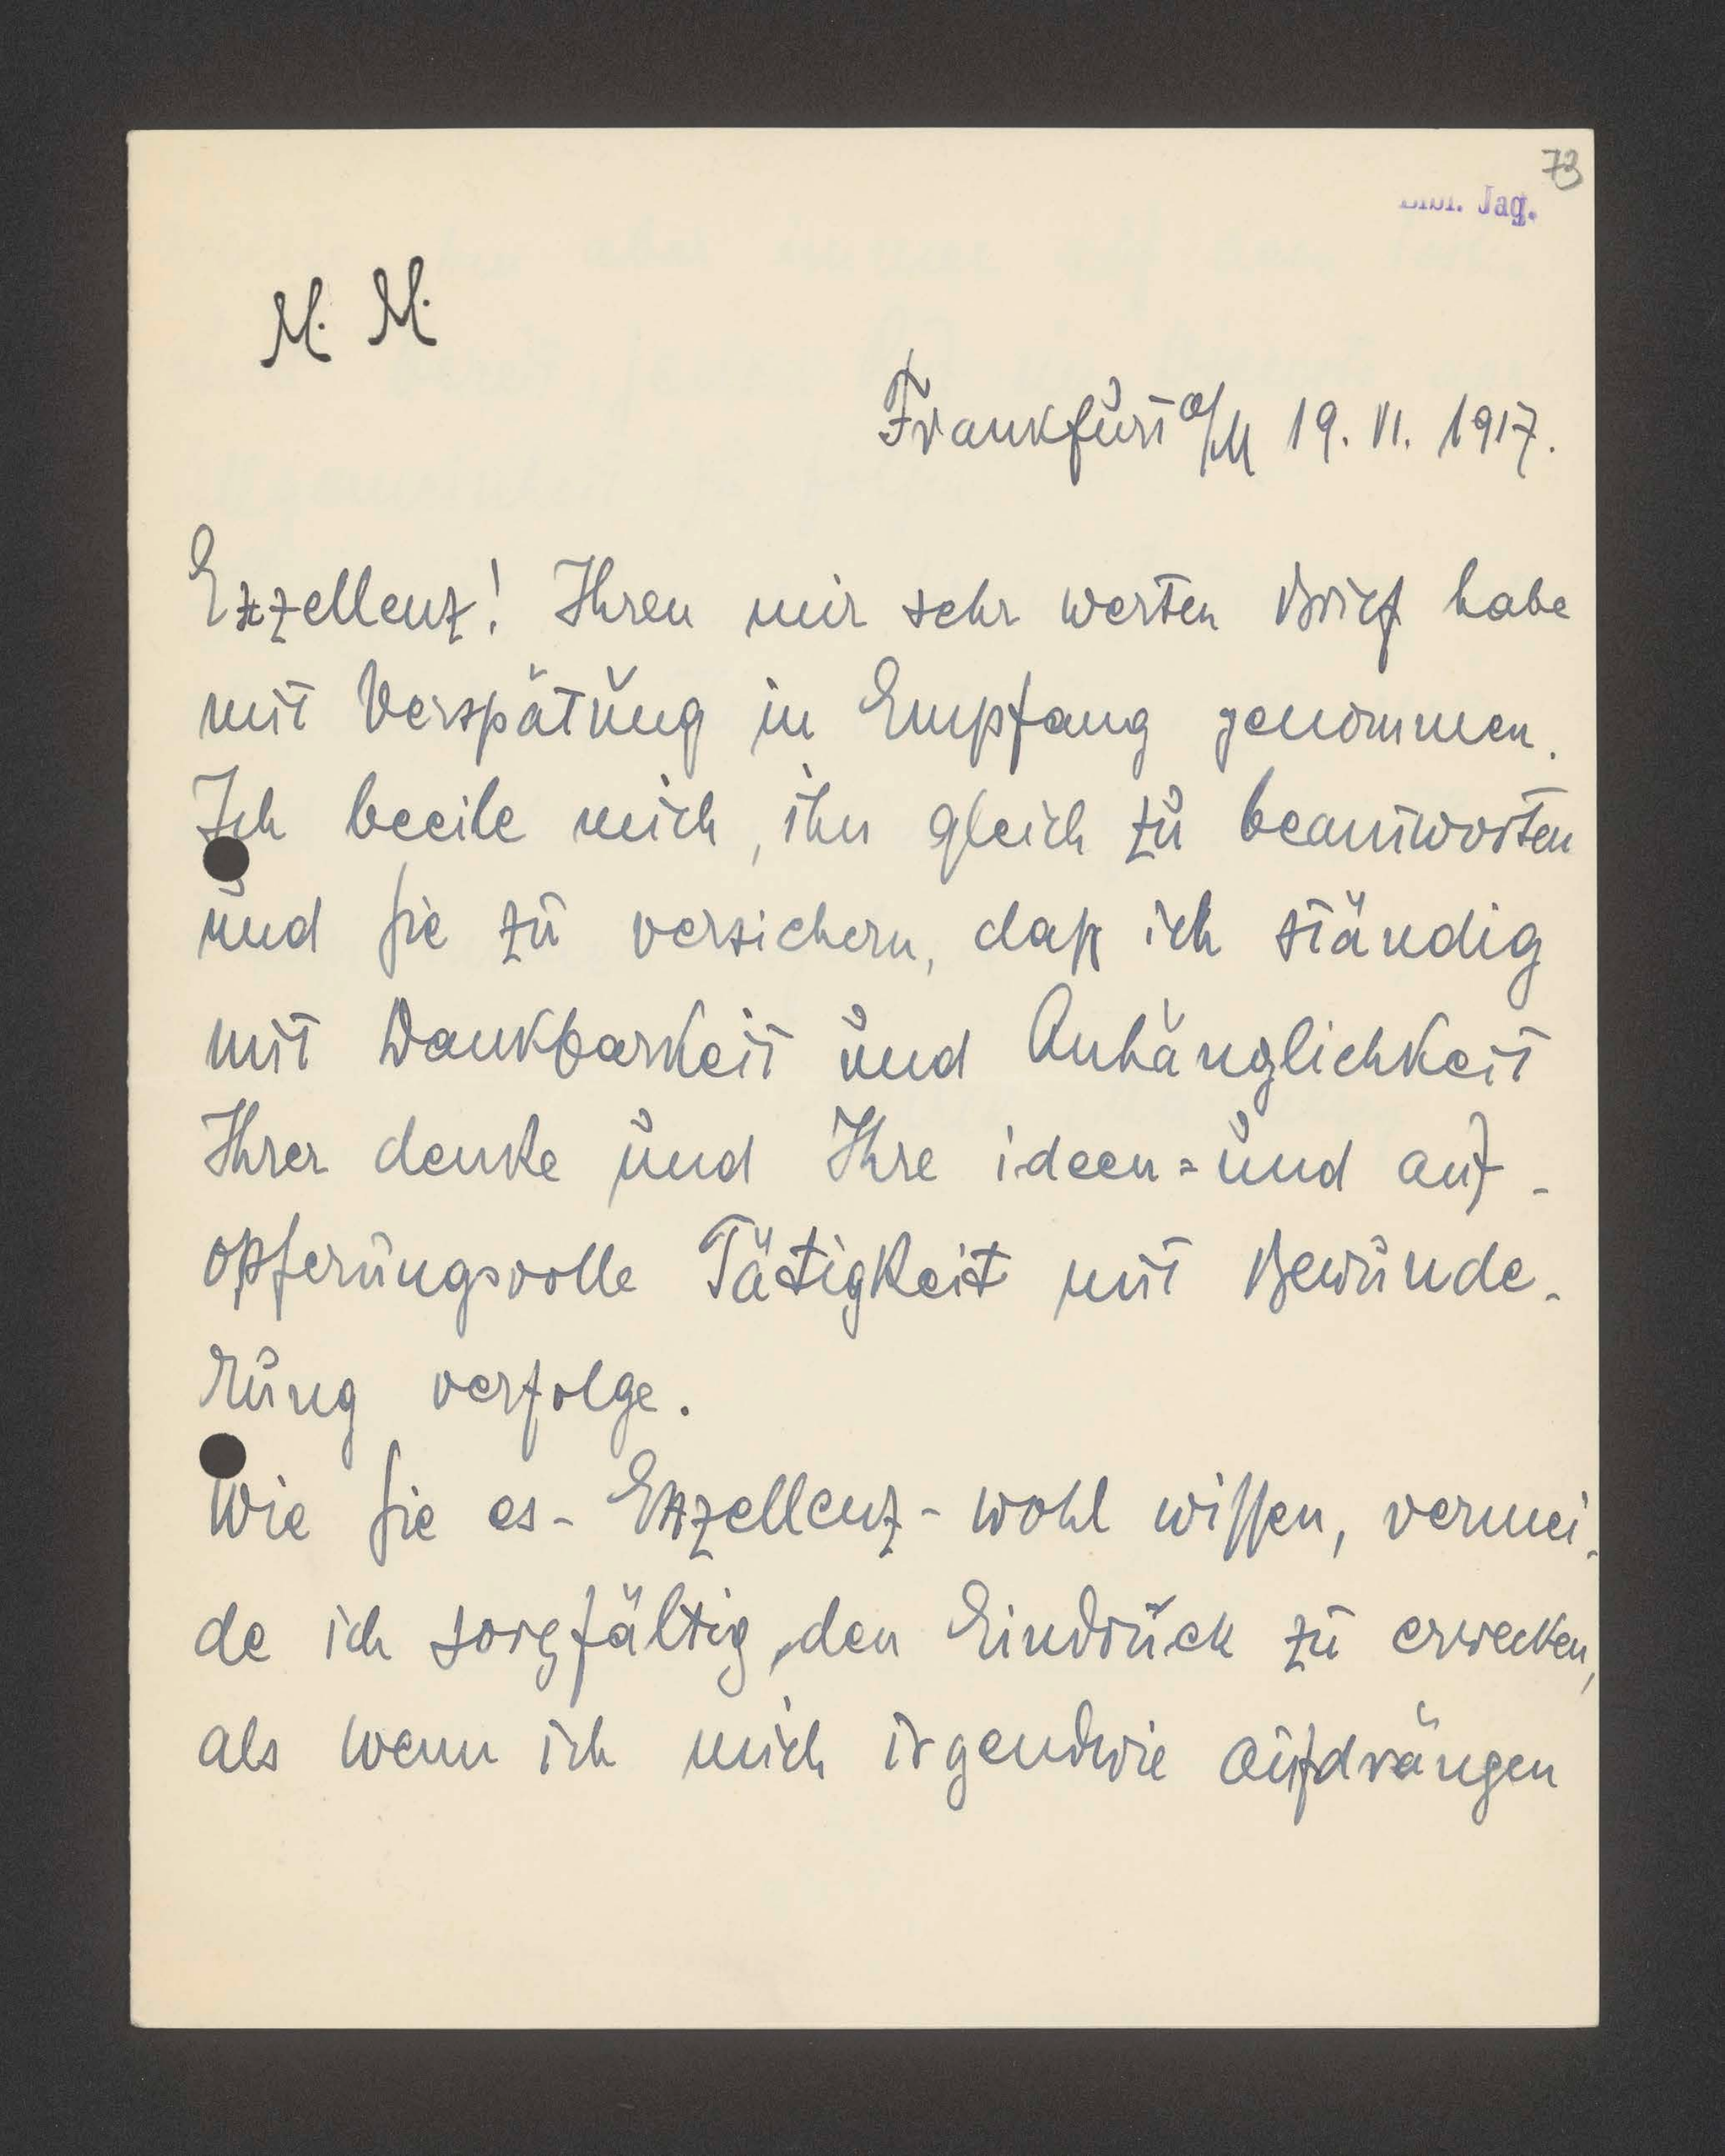 73
Bibl. Jag.
M. M.
Frankfurt a/M 19. VI. 1917.
Exzellenz! Ihren mir sehr werten Brief habe
mit Verspätung in Empfang genommen.
Ich beeile mich, ihn gleich zu beantworten
und Sie zu versichern, daß ich ständig
mit Dankbarkeit und Anhänglichkeit
Ihrer denke und Ihre ideen= und auf-
opferungsvolle Tätigkeit mit Bewunde-
rung verfolge.
Wie Sie es - Exzellenz - wohl wissen, vermei-
de ich sorgfältig, den Eindruck zu erwecken,
als wenn ich mich irgendwie aufdrängen